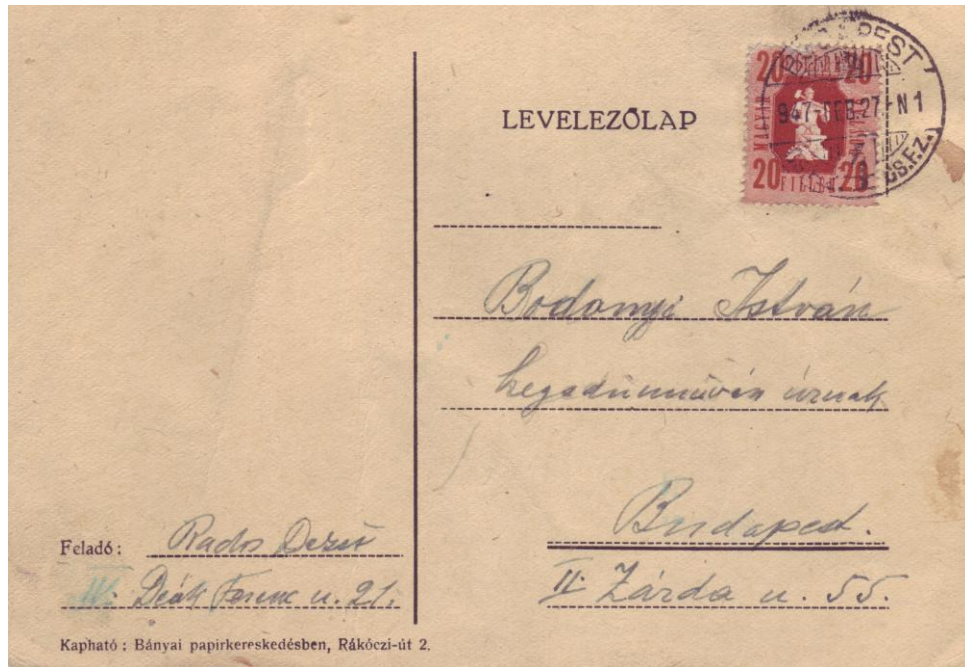 LEVELEZŐLAP
20 20
MAGYAR
20 FILLÉR 20
BUDAPEST
947-FEB.27-N1
CS.F.Z.
Bodonyi István
hegedűművész úrnak
Budapest.
II. Zárda u. 55.
Feladó: Rados Dezső
IV. Deák Ferenc u. 21.
Kapható: Bányai papirkereskedésben, Rákóczi-út 2.